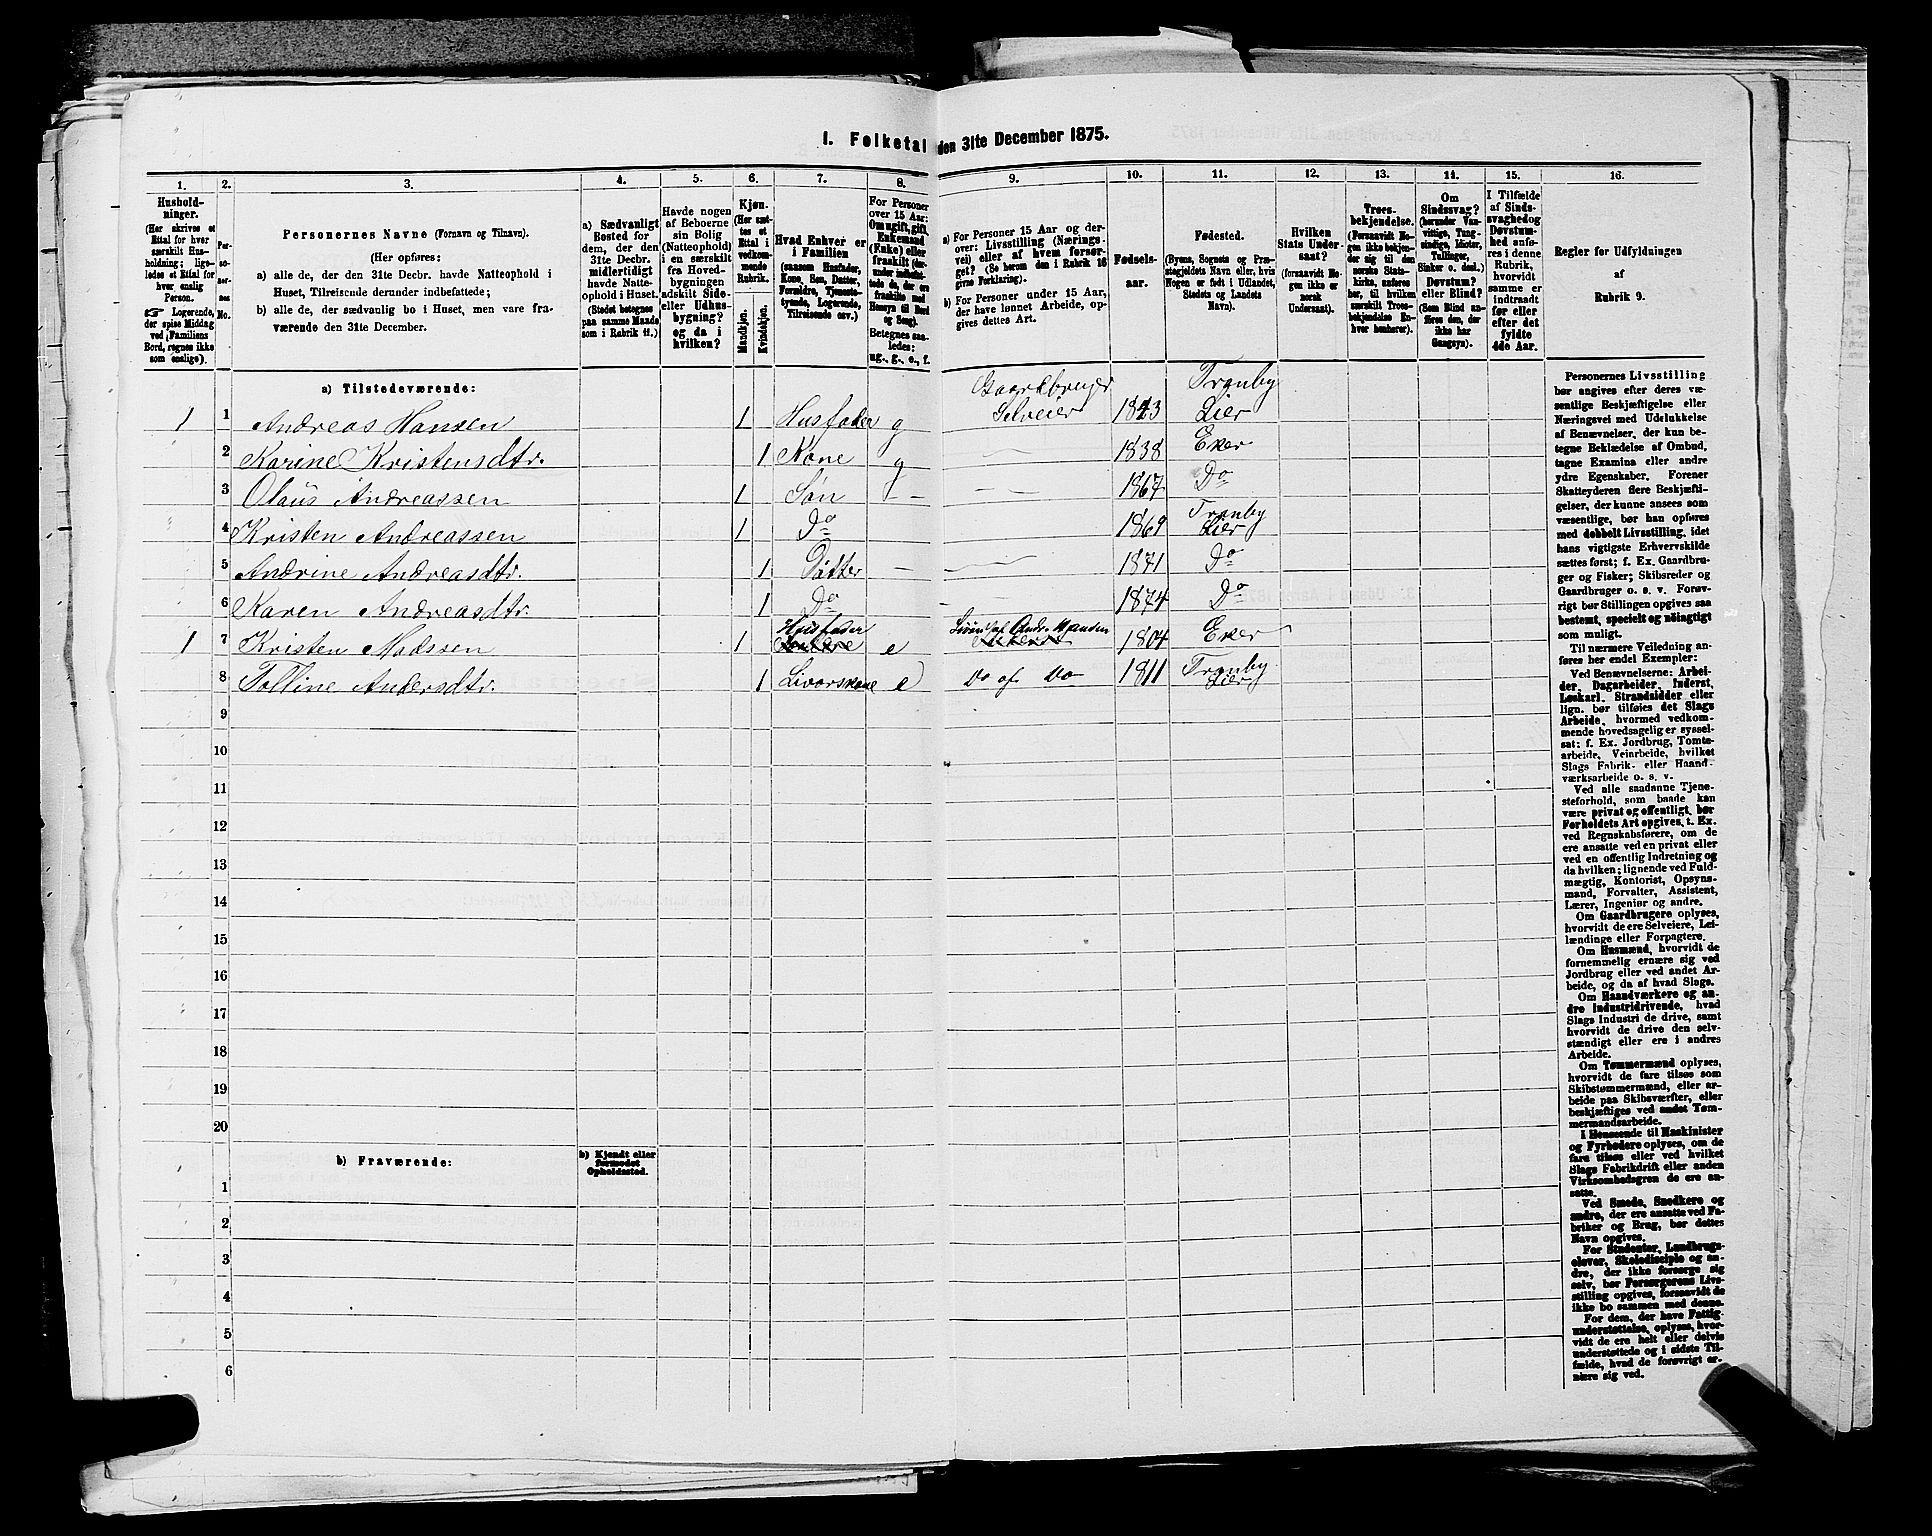 1. Folketal den 31te December 1875.
1. 2. 3. 4. 5. 6. 7. 8. 9. 10. 11. 12. 13. 14. 15. 16.
Hushold-
ninger.
(Her skrives et
Ettal for hver
særskilt Hus-
holdning; lige-
ledes et Ettal for
hver enslig
Person.
☞ Logerende,
der spise Middag
ved Familiens
Bord, regnes ikke
som enslige).
Per-
so-
ner-
nes
No.
Personernes Navne (Fornavn og Tilnavn).
(Her opføres:
a) alle de, der den 31te Decbr. havde Natteophold i
Huset, Tilreisende derunder indbefattede;
b) alle de, der sædvanlig bo i Huset, men vare fra-
værende den 31te December.
a) Sædvanligt
Bosted for
dem, der den
31te Decbr.
midlertidigt
havde Natte-
ophold i Huset.
(Stedet betegnes
paa samme Maade
som i Rubrik 11.)
Havde nogen
af Beboerne
sin Bolig
(Natteophold)
i en særskilt
fra Hoved-
bygningen
adskilt Side-
eller Udhus-
bygning?
og da i
hvilken?
Kjøn.
(Her sæt-
tes et
Ettal i
vedkom-
mende
Rubrik.
Mandkjøn.
Kvindekjøn.
Hvad Enhver er
i Familien
(saasom Husfader,
Kone, Søn, Datter,
Forældre, Tjeneste-
tyende, Logerende,
Tilreisende osv.)
For Personer
over 15 Aar:
Om ugift, gift,
Enkemand
(Enke) eller
fraskilt
Betegnes saa-
ledes:
ug., g., e., f.
a) For Personer 15 Aar og der-
over: Livsstilling (Nærings-
vei) eller af hvem forsør-
get? (Se herom den i Rubrik 16
givne Forklaring).
b) For Personer under 15 Aar,
der have lønnet Arbeide, op-
gives dettes Art.
Fødsels-
aar.
Fødested.
(Byens, Sognets og Præ-
stegjeldets Navn eller, hvis
Nogen er født i Udlandet,
Stedets og Landets
Navn).
Hvilken
Stats Under-
saat?
(forsaavidt No-
gen ikke er
norsk
Undersaat).
Troes-
bekjendelse.
(Forsaavidt No-
gen ikke bekjen-
der sig til den
norske Stats-
kirke, anføres
her, til hvilken
særskilt Troes-
bekjendelse En-
hver henhører).
Om
Sindssvag?
(herunder Van-
vittige, Tung-
sindige, Idioter,
Tullinger,
Sinker o. desl.)
Døvstum?
eller Blind?
(Som Blind an-
føres den, der
ikke har
Gangsyn).
I Tilfælde
af Sinds-
svaghed og
Døvstum-
hed anfø-
res i denne
Rubrik,
hvorvidt
samme er
indtraadt
før eller
efter det
fyldte
4de Aar.
Regler for Udfyldningen
af
Rubrik 9.
a) Tilstedeværende:
1 1 Andreas Hansen 1 Husfader g Gaardbruger Selveier 1823 Tranby Lier
2 Karine Kristensdtr. 1 Kone g — 1838 Eker
3 Olaus Andreassen 1 Søn — — 1867 Do
4 Kristen Andreassen 1 Do 1869 Tranby Lier
5 Andrine Andreasdtr. 1 Datter — — 1871 Do
6 Karen Andreasdtr. 1 Do — 1874 Do
1 7 Kristen Madssen 1 Husfader e 1804 Eker
8 Tolline Andersdtr. 1 Livørskone e Do af Do 1811 Tranby Lier
9
10
11
12
13
14
15
16
17
18
19
20
b) Fraværende:
b) Kjendt eller
formodet
Opholdssted.
1
2
3
4
5
6
Personernes Livsstilling
bør angives efter deres væ-
sentlige Beskjæftigelse eller
Næringsvei med Udelukkelse
af Benævnelser, der kun be-
tegne Beklædelse af Ombud,
tagne Examina eller andre
ydre Egenskaber. Forener
Skatteyderen flere Beskjæfti-
gelser, der kunne ansees som
væsentlige, bør han opføres
med dobbelt Livsstilling, idet
hans vigtigste Erhvervskilde
sættes først; f. Ex. Gaardbru-
ger og Fisker; Skibsreder og
Gaardbruger o. s. v. Forøv-
rigt bør Stillingen opgives saa
bestemt, specielt og nøiagtigt
som muligt.
Til nærmere Veiledning an-
føres her endel Exempler:
Ved Benævnelserne: Arbei-
der, Dagarbeider, Inderst,
Løskarl, Strandsidder eller
lign. bør tilføies det Slags
Arbeide, hvormed vedkom-
mende hovedsagelig er syssel-
sat; f. Ex. Jordbrug, Tomte-
arbeide, Veiarbeide, hvilket
Slags Fabrik- eller Haand-
værksarbeide o. s. v.
Ved alle saadanne Tjene-
steforhold, som baade kan
være privat og offentligt, bør
Forholdets Art opgives, t. Ex.
ved Regnskabsførere, om de
ere ansatte ved en privat eller
ved en offentlig Indretning og
da hvilken; lignende ved Fuld-
mægtig, Kontorist, Opsyns-
mand, Forvalter, Assistent,
Lærer, Ingeniør og andre.
Om Gaardbrugere oplyses,
hvorvidt de ere Selveiere, Lei-
lændinge eller Forpagtere.
Om Husmænd, hvorvidt de
fornemmelig ernære sig ved
Jordbrug eller ved andet Ar-
beide, og da af hvad Slags.
Om Haandværkere og an-
dre Industridrivende, hvad
Slags Industri de drive, samt
hvorvidt de drive den selv-
stændigt eller ere i andres
Arbeide.
Om Tømmermænd oplyses,
hvorvidt de fare tilsøs som
Skibstømmermænd, eller ar-
beide paa Skibsværfter, eller
beskjæftiges ved andet Tøm-
mermandsarbeide.
I Henseende til Maskinister
og Fyrbødere oplyses, om de
fare tilsøs eller ved hvilket
Slags Fabrikdrift eller anden
Virksomhedsgren de ere an-
satte.
Ved Smede, Snedkere og
andre, der ere ansatte ved Fa-
briker og Brug, bør dettes
Navn opgives.
For Studenter, Landbrugs-
elever, Skoledisciple og an-
dre, der ikke forsørge sig
selv, bør Forsørgerens Livs-
stilling opgives, forsaavidt de
ikke bo sammen med denne.
For dem, der have Fattig-
understøttelse, oplyses, hvor-
vidt de ere helt eller delvis
understøttede og i sidste Til-
fælde, hvad de forøvrigt er-
nære sig ved.